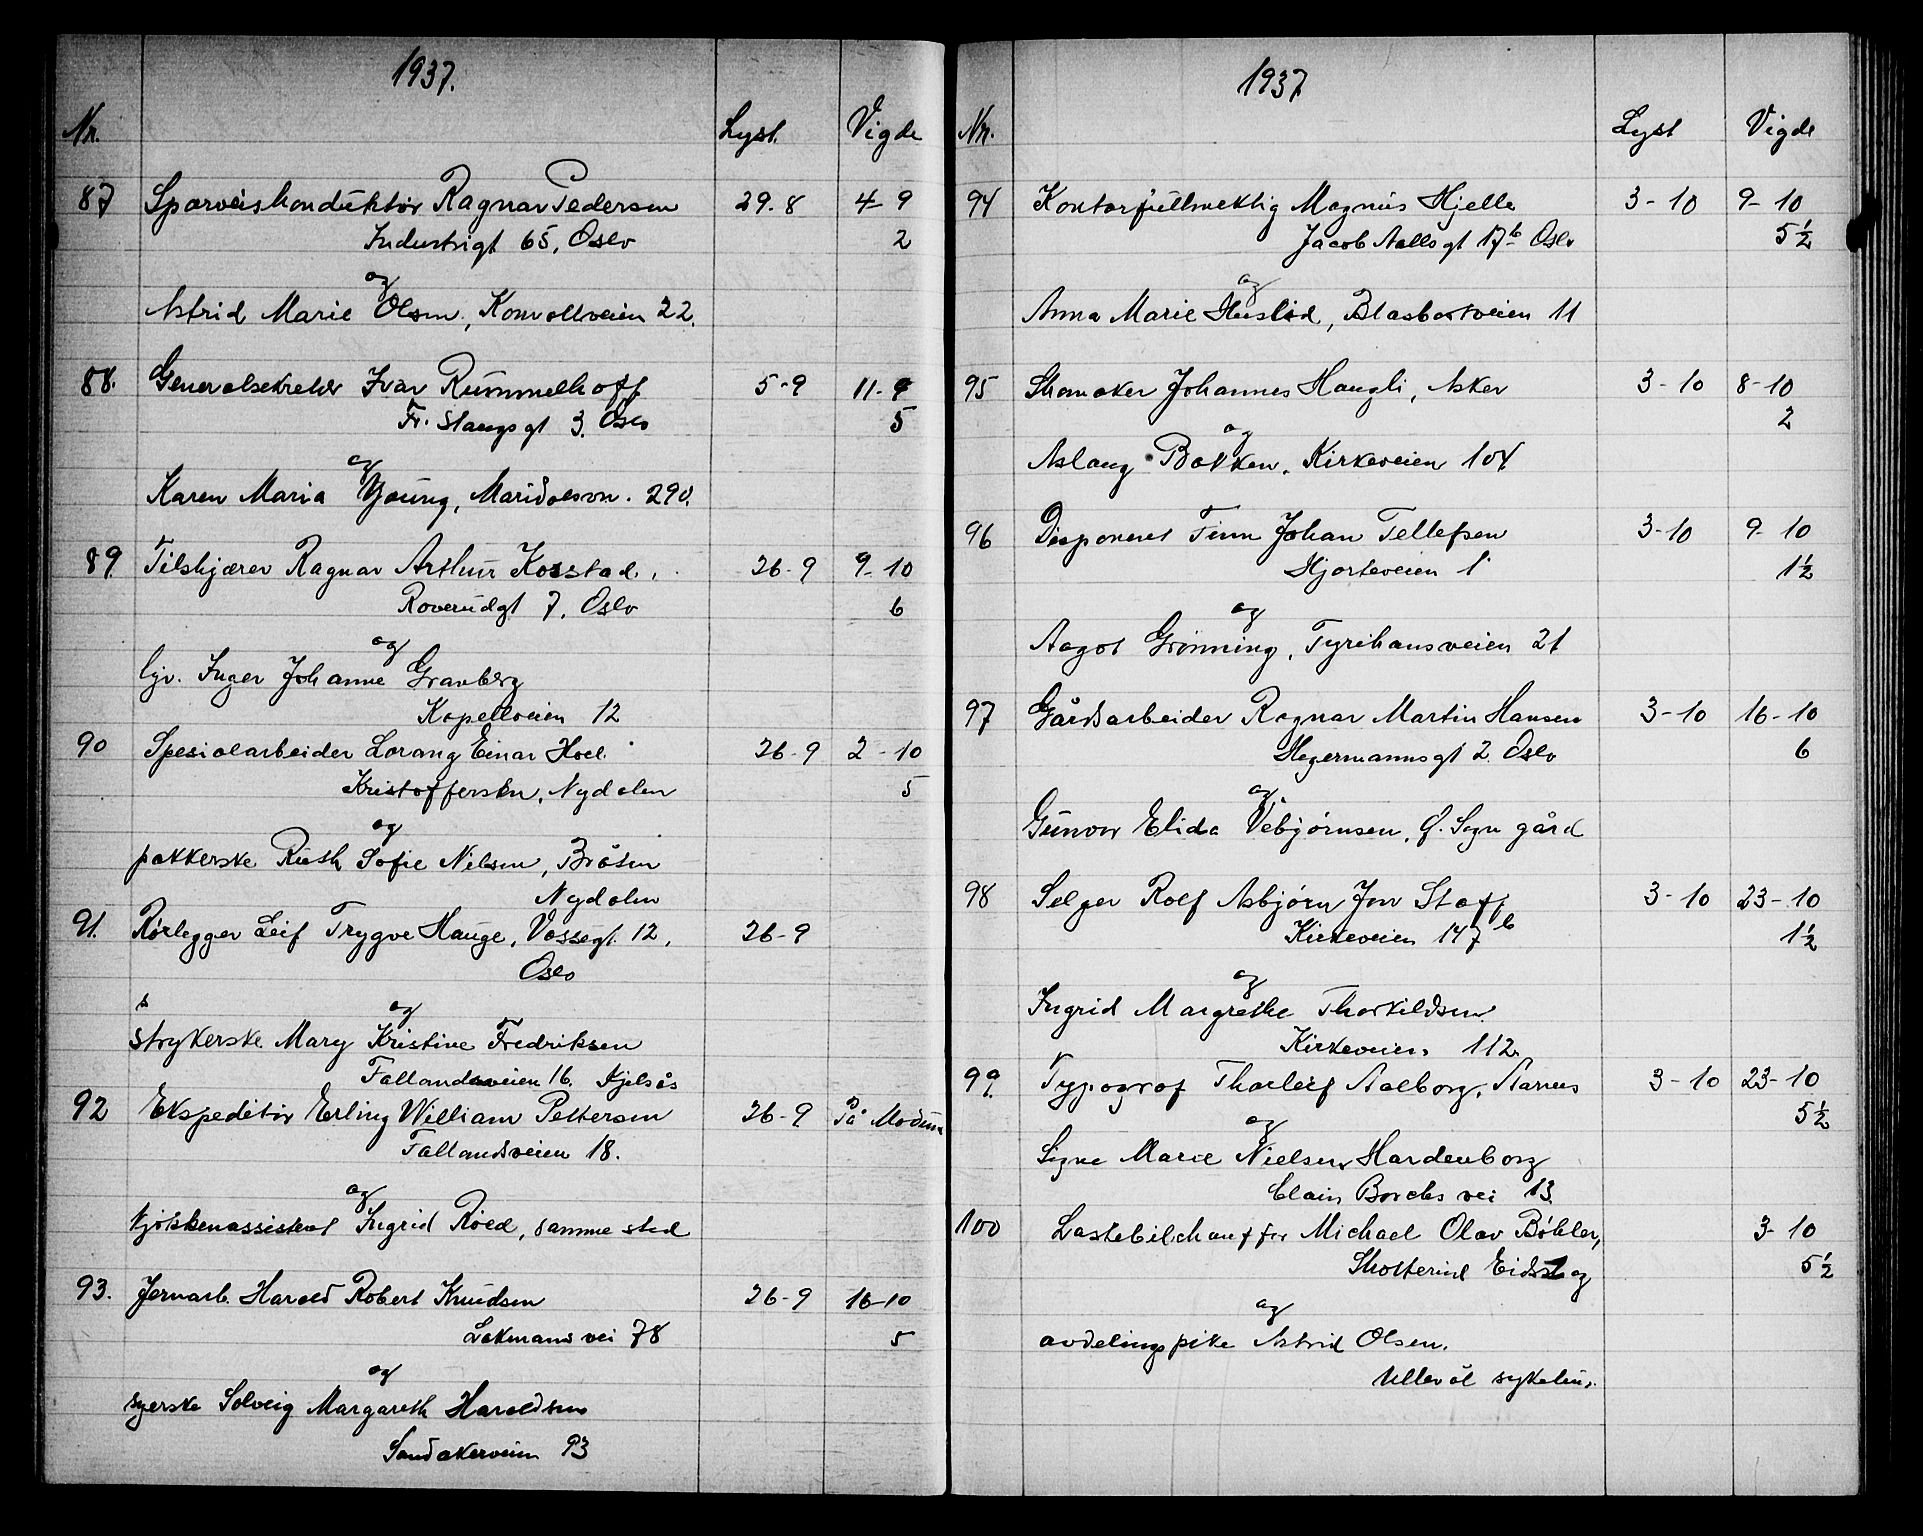 1937.
Nr. Lyst. Vigde
87 Sporveiskonduktør Ragnar Pedersen 29.8 4-9
Industrigt 65, Oslo 2
og
Astrid Marie Olsen, Konvallveien 22.
88. Generalsekretær Ivar Rummelhoff 5-9 11-9
Fr. Stangsgt 3. Oslo 5
og
Karen Maria Young, Maridalsvn. 290.
89. Tilskjærer Ragnar Arthur Kosstad. 26-9 9-10
Roverudgt 7, Oslo 6
og
Inger Johanne Granberg
Kapellveien 12
90 Spesialarbeider Lorang Einar Hoel 26-9 2-10
Kristoffersen, Nydalen 5
og
pakkerske Ruth Sofie Nilsen, Bråten
Nydalen
91. Rørlegger Leif Trygve Hauge, Vossegt. 12, 26-9
Oslo
s og
strykerske Mary Kristine Fredriksen
Fallandsveien 16. Kjelsås
92 Ekspeditør Erling William Pettersen 26-9 På Modum
Fallandsveien 18.
og
kjøkkenassistent Ingrid Røed, samme sted
93. Jernarb. Harald Robert Knudsen 26-9 16-10
Lakmans vei 78 5
og
syerske Solveig Margareth Haraldsen
Sandakerveien 93
1937
Nr. Lyst Vigde
94 Kontorfullmektig Magnus Hjelle 3-10 9-10
Jacob Aallsgt 17b Oslo 5½
og
Anna Marie Huslid, Blåsbortveien 11
95 Skomaker Johannes Haugli, Asker 3-10 8-10
2
og
Aslaug Bakken, Kirkeveien 104
96 Disponent Finn Johan Tellefsen 3-10 9-10
Hjorteveien 1 1½
og
Aagot Grønning, Tyrihansveien 21
97 Gårdsarbeider Ragnar Martin Hansen 3-10 16-10
Hegermannsgt 2. Oslo 6
og
Gunvor Elida Vebjørnsen, Ø. Sogn gård
98 Selger Rolf Asbjørn Jon Staff 3-10 23-10
Kirkeveien 147b 1½
og
Ingrid Margrethe Thorkildsen
Kirkeveien 112.
99. Typograf Thorleif Aalborg, Aarnes 3-10 23-10
5½
og
Signe Marie Nielsen Hardenborg
Clain Borchs vei 13.
100 Lastebilchauffør Michael Olav Bøhler, 3-10
Skolterud Eidskog 5½
og
avdelingspike Astrid Olsen.
Ullevål sykehus.